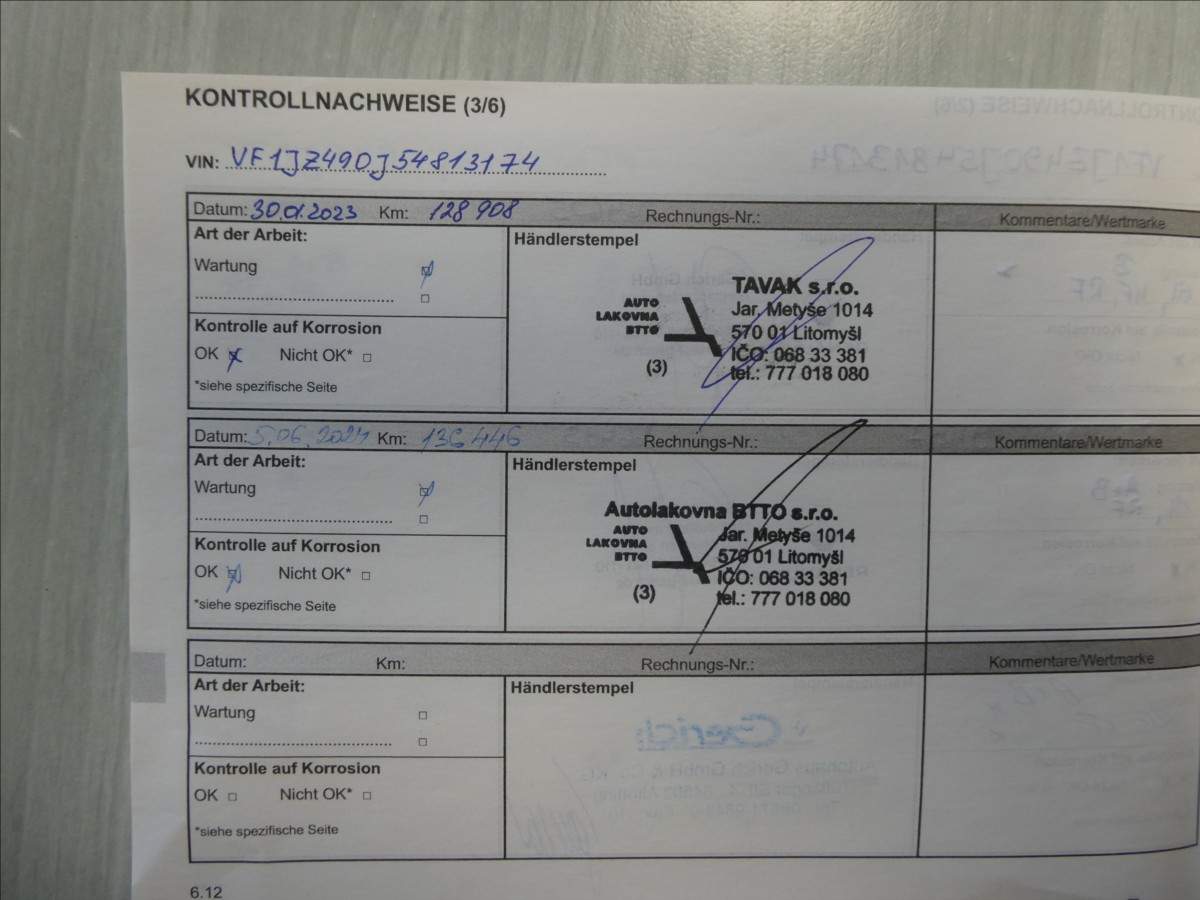 KONTROLLNACHWEISE (3/6)
VIN: VF1JZ49DJ54813174
Datum: 30.01.2023 Km: 128 908 Rechnungs-Nr.: Kommentare/Wertmarke
Art der Arbeit:
Händlerstempel
Wartung
Kontrolle auf Korrosion
OK Nicht OK*
*siehe spezifische Seite
AUTO
LAKOVNA
BTTO
(3)
TAVAK s.r.o.
Jar. Metyše 1014
570 01 Litomyšl
IČO: 068 33 381
tel.: 777 018 080
Datum: 5.06.2024 Km: 136 446 Rechnungs-Nr.: Kommentare/Wertmarke
Art der Arbeit:
Händlerstempel
Wartung
Kontrolle auf Korrosion
OK Nicht OK*
*siehe spezifische Seite
Autolakovna BTTO s.r.o.
AUTO
LAKOVNA
BTTO
(3)
Jar. Metyše 1014
570 01 Litomyšl
IČO: 068 33 381
tel.: 777 018 080
Datum: Km: Rechnungs-Nr.: Kommentare/Wertmarke
Art der Arbeit:
Händlerstempel
Wartung
Kontrolle auf Korrosion
OK Nicht OK*
*siehe spezifische Seite
6.12